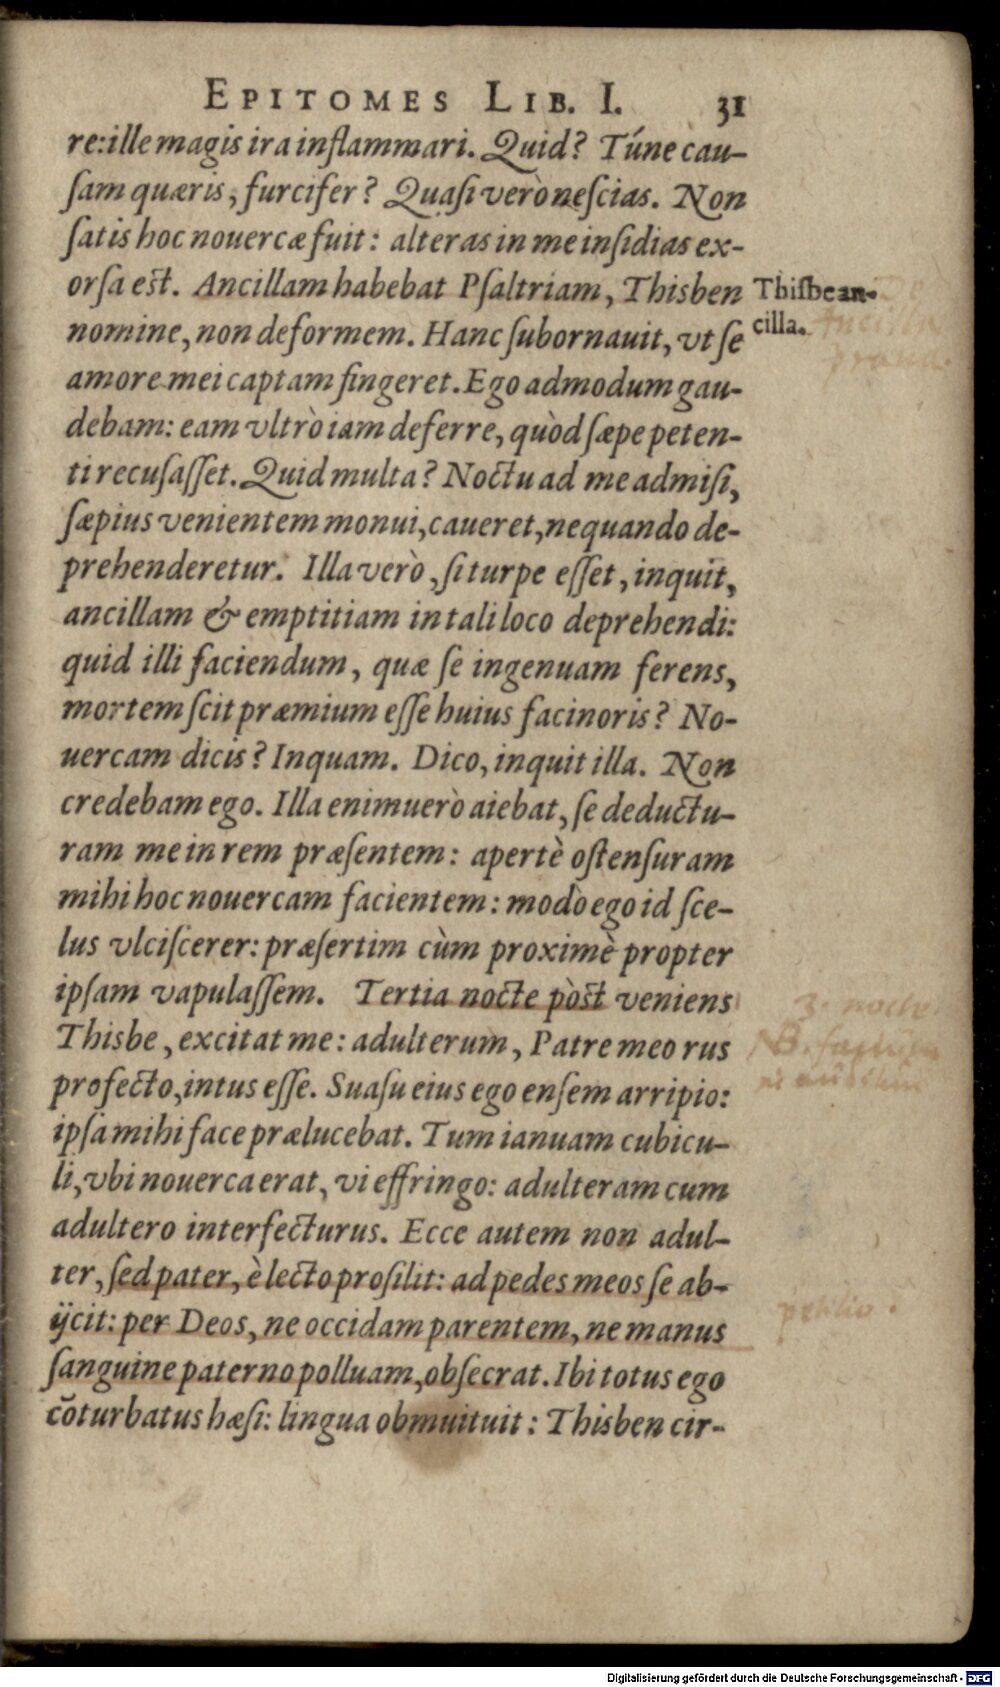 EPITOMES LIB. I. 31
re: ille magis ira inflammari. Quid? Túne cau-
ſam quæris, furcifer? Quaſi verò neſcias. Non
ſatis hoc nouercæ fuit: alteras in me inſidias ex-
orſa est. Ancillam habebat Pſaltriam, Thisben
Thiſbe an-
cilla.
Ancilla
nomine, non deformem. Hanc ſubornauit, vt ſe
amore mei captam fingeret. Ego admodum gau-
debam: eam vltrò iam deferre, quòd ſæpe peten-
ti recuſaſſet. Quid multa? Noctu ad me admiſi,
ſæpius venientem monui, caueret, ne quando de-
prehenderetur. Illa verò, ſi turpe eſſet, inquit,
ancillam & emptitiam in tali loco deprehendi:
quid illi faciendum, quæ ſe ingenuam ferens,
mortem ſcit præmium eſſe huius facinoris? No-
uercam dicis? Inquam. Dico, inquit illa. Non
credebam ego. Illa enimuerò aiebat, ſe deductu-
ram me in rem præſentem: apertè oſtenſuram
mihi hoc nouercam facientem: modò ego id ſce-
lus vlciſcerer: præſertim cùm proximè propter
ipſam vapulaſſem. Tertia nocte pòst veniens
3. nocte
NB.
Thisbe, excitat me: adulterum, Patre meo rus
profecto, intus eſſe. Suaſu eius ego enſem arripio:
ipſa mihi face prælucebat. Tum ianuam cubicu-
li, vbi nouerca erat, vi effringo: adulteram cum
adultero interfecturus. Ecce autem non adul-
ter, ſed pater, è lecto proſilit: ad pedes meos ſe ab-
petitio.
ijcit: per Deos, ne occidam parentem, ne manus
ſanguine paterno polluam, obſecrat. Ibi totus ego
cōturbatus hæſi: lingua obmuituit: Thisben cir-
Digitalisierung gefördert durch die Deutsche Forschungsgemeinschaft - DFG